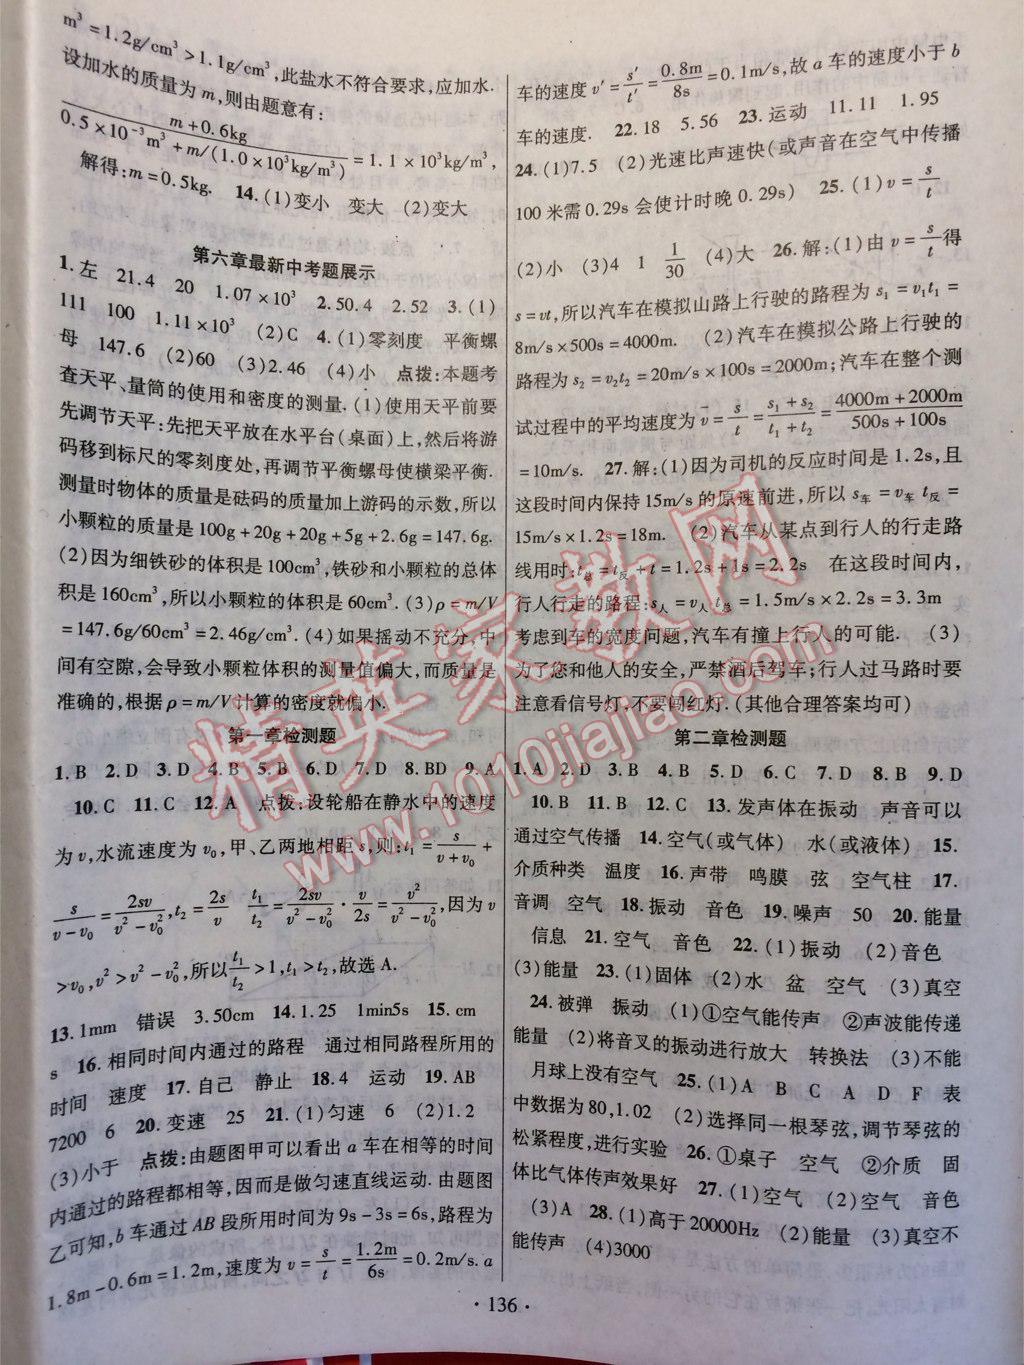 m³=1.2g/cm³>1.1g/cm³,此盐水不符合要求,应加水.
设加水的质量为m,则由题意有:
(m+0.6kg)/(0.5×10⁻³m³+m/(1.0×10³kg/m³))=1.1×10³kg/m³,
解得:m=0.5kg. 14.(1)变小 变大 (2)变大
第六章最新中考题展示
1.左 21.4 20 1.07×10³ 2.50.4 2.52 3.(1)
111 100 1.11×10³ (2)C 4.(1)零刻度 平衡螺
母 147.6 (2)60 (3)2.46 (4)小 点拨:本题考
查天平、量筒的使用和密度的测量.(1)使用天平前要
先调节天平:先把天平放在水平台(桌面)上,然后将游
码移到标尺的零刻度处,再调节平衡螺母使横梁平衡.
测量时物体的质量是砝码的质量加上游码的示数,所以
小颗粒的质量是100g+20g+20g+5g+2.6g=147.6g.
(2)因为细铁砂的体积是100cm³,铁砂和小颗粒的总体
积是160cm³,所以小颗粒的体积是60cm³.(3)ρ=m/V
=147.6g/60cm³=2.46g/cm³.(4)如果摇动不充分,中
间有空隙,会导致小颗粒体积的测量值偏大,而质量是
准确的,根据ρ=m/V计算的密度就偏小.
第一章检测题
1.B 2.D 3.D 4.B 5.B 6.D 7.D 8.BD 9.A
10.C 11.C 12.A 点拨:设轮船在静水中的速度
为v,水流速度为v₀,甲、乙两地相距s,则:t₁=s/(v+v₀)+
s/(v-v₀)=2sv/(v²-v₀²),t₂=2s/v t₁/t₂=2sv/(v²-v₀²)·v/2s=v²/(v²-v₀²),因为v
>v₀,v²>v²-v₀²,所以t₁/t₂>1,t₁>t₂,故选A.
13.1mm 错误 3.50cm 14.1.25 1min5s 15.cm
s 16.相同时间内通过的路程 通过相同路程所用的
时间 速度 17.自己 静止 18.4 运动 19.AB
7200 6 20.变速 25 21.(1)匀速 6 (2)1.2
(3)小于 点拨:由题图甲可以看出a车在相等的时间
内通过的路程都相等,因而是做匀速直线运动.由题图
乙可知,b车通过AB段所用时间为9s-3s=6s,路程为
1.8m-0.6m=1.2m,速度为v=s/t=1.2m/6s=0.2m/s.a
车的速度v′=s′/t′=0.8m/8s=0.1m/s,故a车的速度小于b
车的速度. 22.18 5.56 23.运动 11.11 1.95
24.(1)7.5 (2)光速比声速快(或声音在空气中传播
100米需0.29s会使计时晚0.29s) 25.(1)v=s/t
(2)小 (3)4 1 1/30 (4)大 26.解:(1)由v=s/t得
s=vt,所以汽车在模拟山路上行驶的路程为s₁=v₁t₁=
8m/s×500s=4000m. (2)汽车在模拟公路上行驶的
路程为s₂=v₂t₂=20m/s×100s=2000m;汽车在整个测
试过程中的平均速度为v̄=s/t=(s₁+s₂)/(t₁+t₂)=(4000m+2000m)/(500s+100s)
=10m/s. 27.解:(1)因为司机的反应时间是1.2s,且
这段时间内保持15m/s的原速前进,所以s车=v车t反=
15m/s×1.2s=18m. (2)汽车从某点到行人的行走路
线用时:t总=t反+t=1.2s+1s=2.2s 在这段时间内,
行人行走的路程:s人=v人t总=1.5m/s×2.2s=3.3m
考虑到车的宽度问题,汽车有撞上行人的可能. (3)
为了您和他人的安全,严禁酒后驾车;行人过马路时要
注意看信号灯,不要闯红灯.(其他合理答案均可)
第二章检测题
1.A 2.D 3.B 4.B 5.C 6.D 7.D 8.B 9.D
10.B 11.B 12.C 13.发声体在振动 声音可以
通过空气传播 14.空气(或气体) 水(或液体) 15.
介质种类 温度 16.声带 鸣膜 弦 空气柱 17.
音调 空气 18.振动 音色 19.噪声 50 20.能量
信息 21.空气 音色 22.(1)振动 (2)音色
(3)能量 23.(1)固体 (2)水 盆 空气 (3)真空
24.被弹 振动 (1)①空气能传声 ②声波能传递
能量 (2)将音叉的振动进行放大 转换法 (3)不能
月球上没有空气 25.(1)A B C A D F 表
中数据为80,1.02 (2)选择同一根琴弦,调节琴弦的
松紧程度,进行实验 26.①桌子 空气 ②介质 固
体比气体传声效果好 27.(1)空气 (2)空气 音色
(3)A 28.(1)高于20000Hz (2)能量 (3)真空不
能传声 (4)3000
·136·
精英家教网
www.1010jiajiao.com